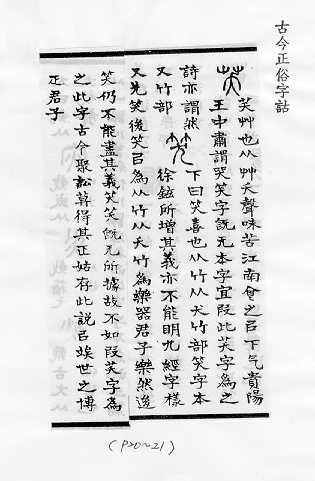 古今正俗字詁
芺
笑艸也从艸夭聲味苦江南食之㠯下气貴陽
王中肅謂哭笑字旣无本字宜叚此芺字為之
詩亦謂然
又竹部
笑
下曰笑喜也从竹从犬竹部笑字本
徐鉉所增其義亦不能明九經字樣
又先笑後笑㠯為从竹从犬竹為樂器君子樂然後
笑仍不能盡其義芺笑旣无所據故不如叚芺字為
之此字古今聚訟莫得其正姑存此説㠯竢世之博
正君子
(P20~21)